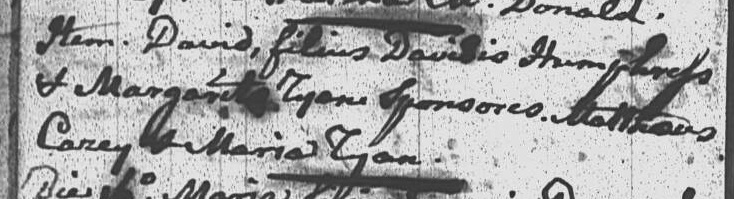 Donald.
Item. David, filius Davidis Humphreys
& Margarita Tyan Sponsores. Mattheus
Carey & Maria Tyan.
Die Maria